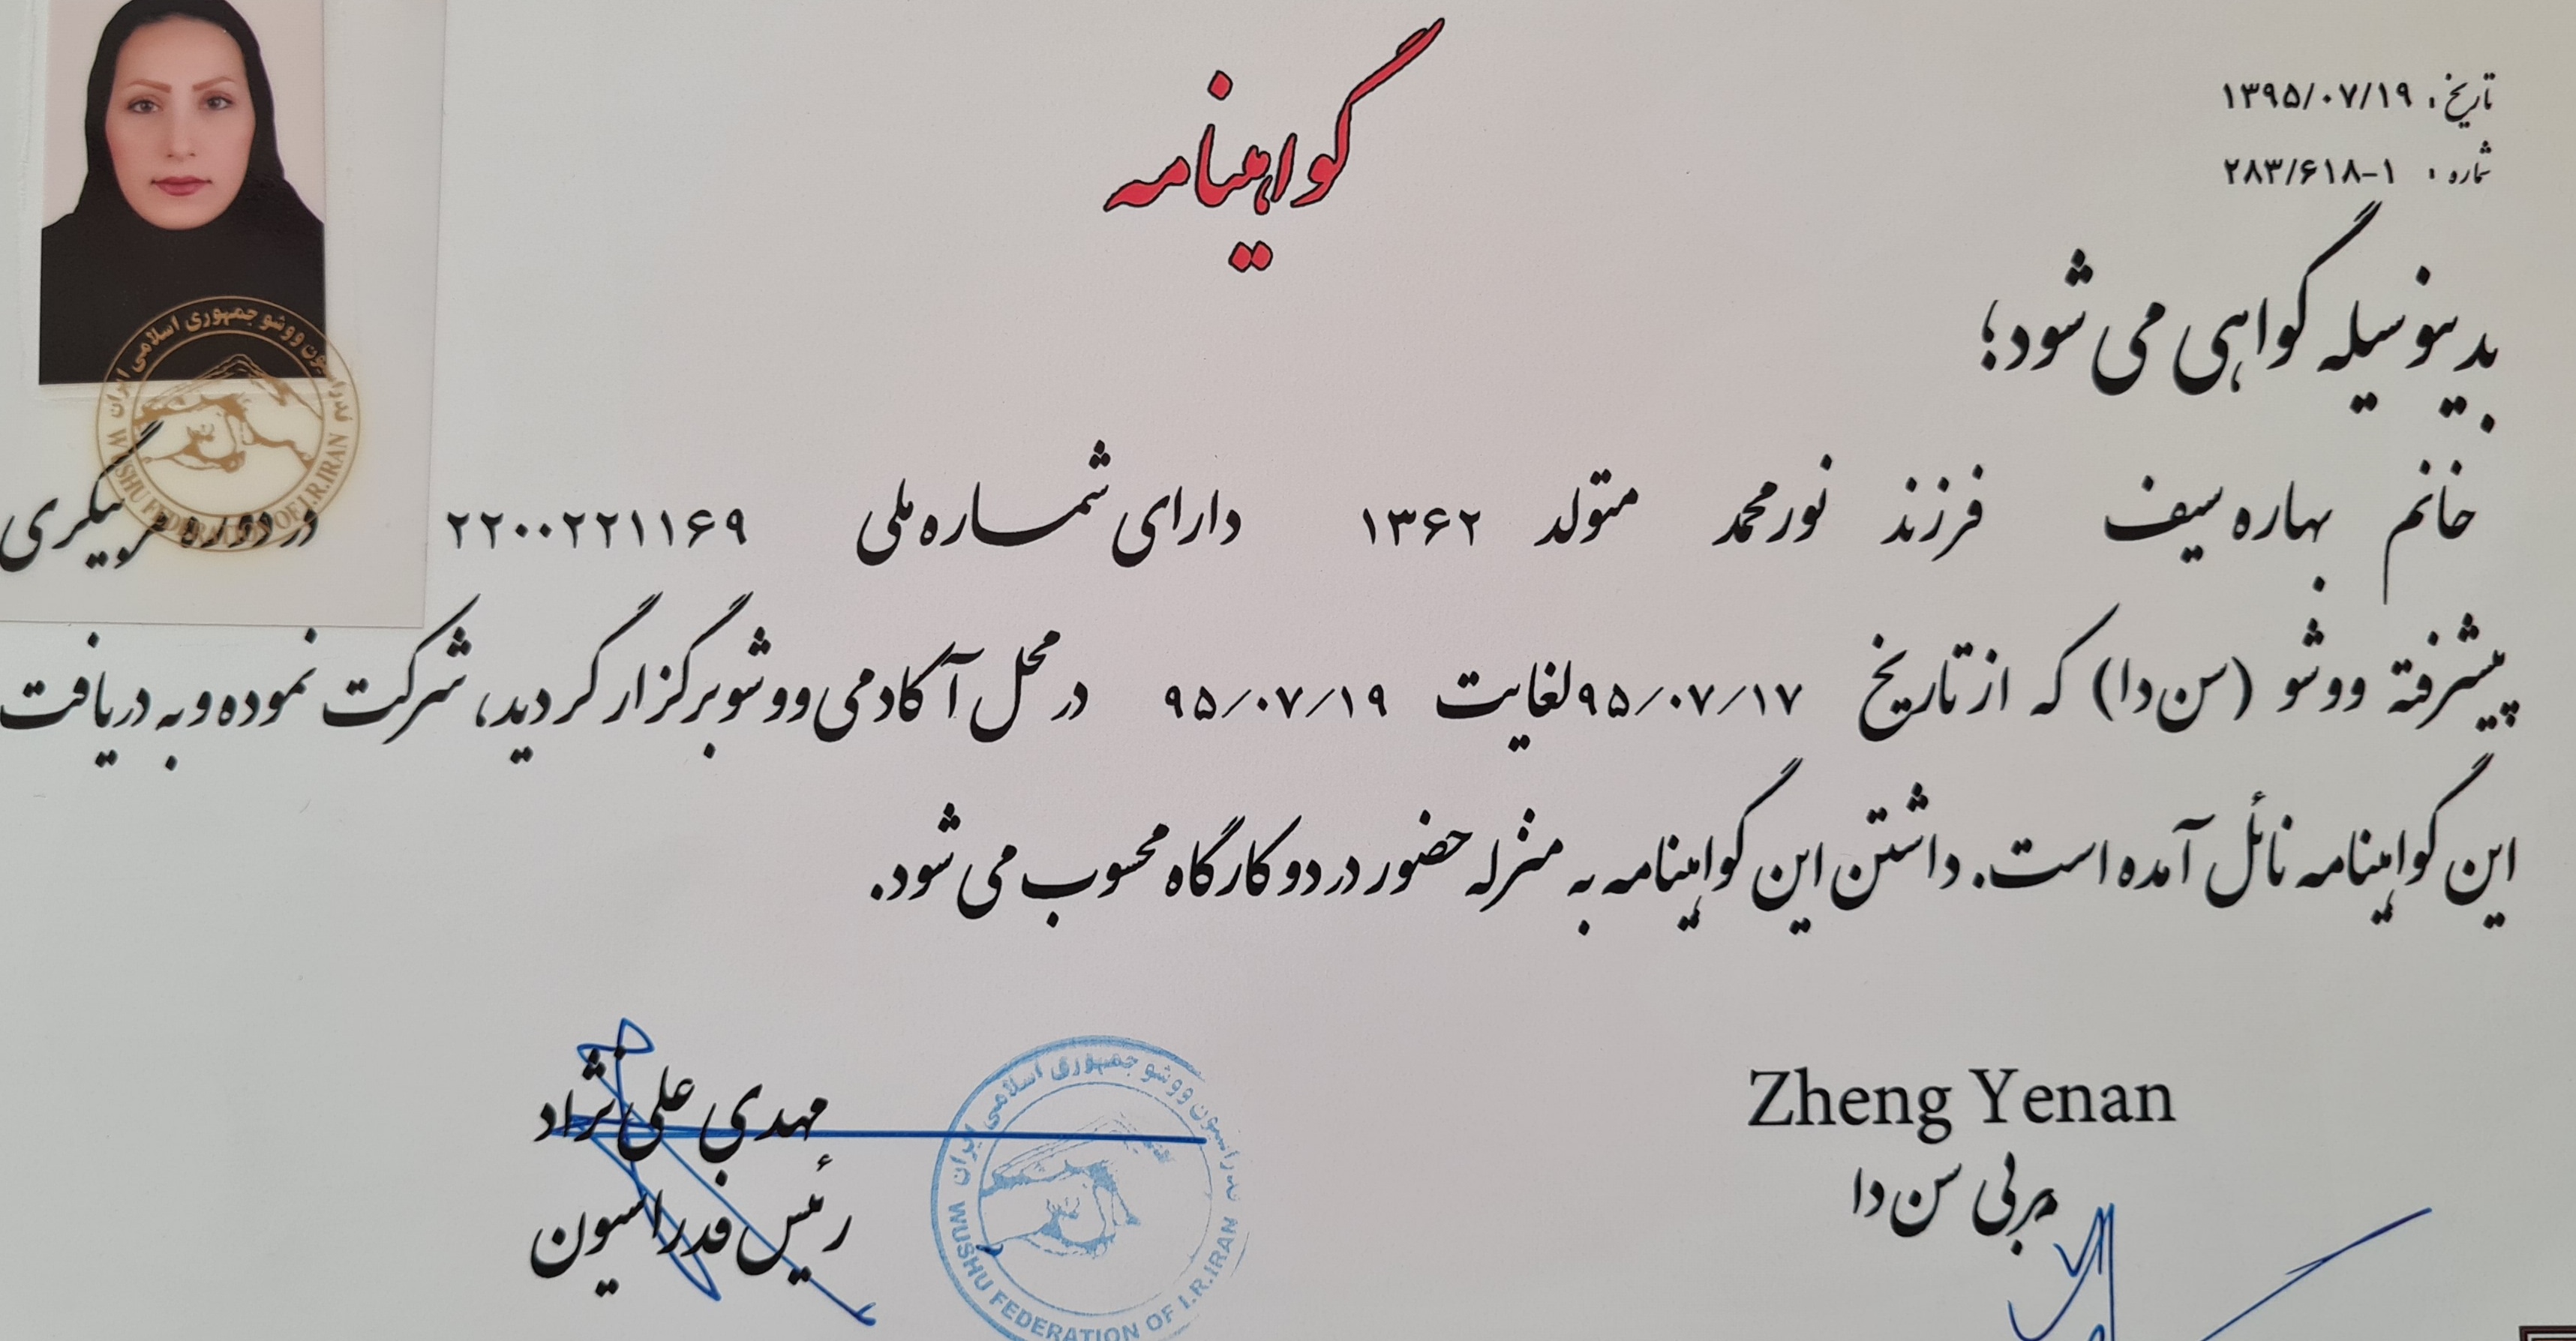 گواهینامه
تاریخ: ۱۳۹۵/۰۷/۱۹
شماره: ۲۸۳/۶۱۸-۱
بدینوسیله گواهی می شود؛
خانم بهاره سیف فرزند نورمحمد متولد ۱۳۶۲ دارای شماره ملی ۲۲۰۰۲۲۱۱۶۹ در دوره مربیگری
پیشرفته ووشو (سن دا) که از تاریخ ۹۵/۰۷/۱۷ لغایت ۹۵/۰۷/۱۹ در محل آکادمی ووشو برگزار گردید، شرکت نموده و به دریافت
این گواهینامه نائل آمده است. داشتن این گواهینامه به منزله حضور در دو کارگاه محسوب می شود.
Zheng Yenan
مربی سن دا
مهدی علی نژاد
رئیس فدراسیون
فدراسیون ووشو جمهوری اسلامی ایران
WUSHU FEDERATION OF I.R.IRAN
فدراسیون ووشو جمهوری اسلامی ایران
WUSHU FEDERATION OF I.R.IRAN